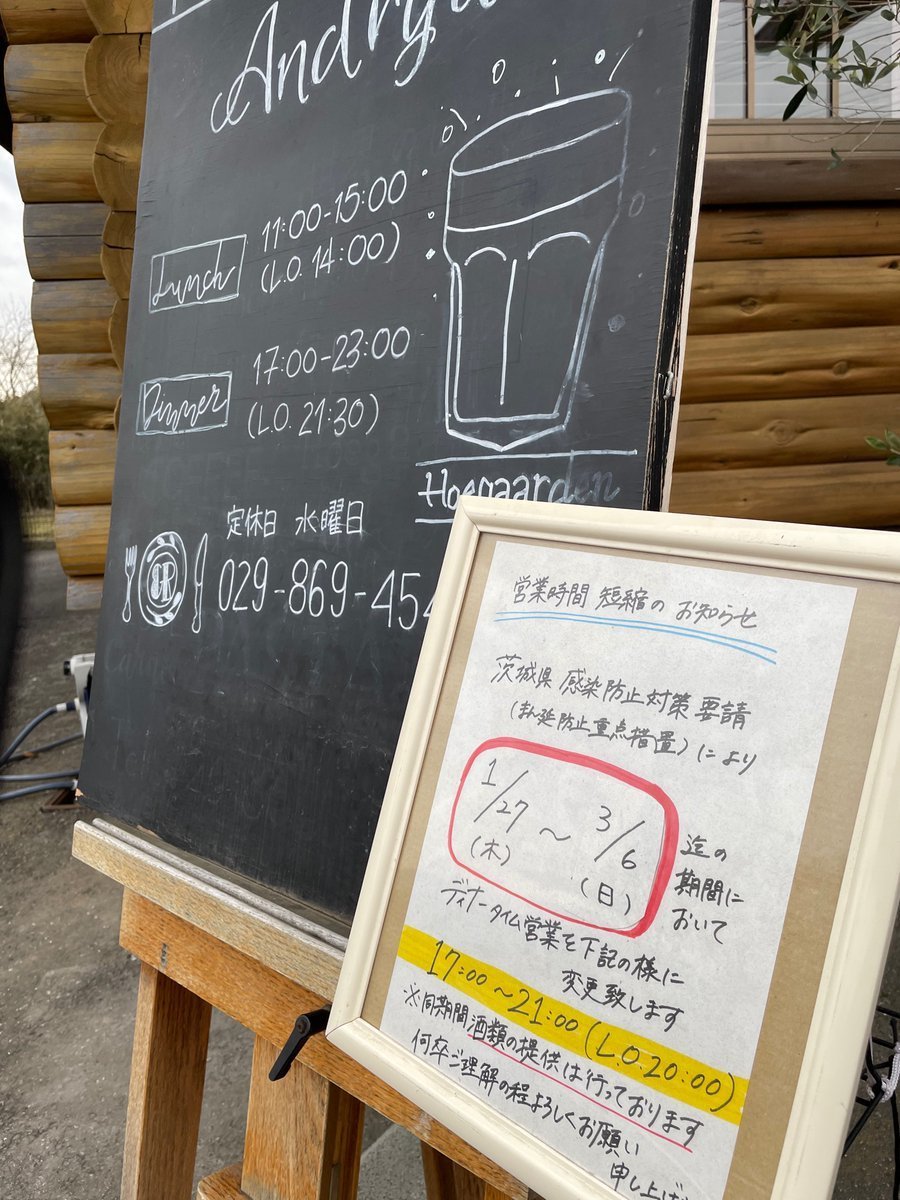 Lunch
11:00-15:00
(L.O. 14:00)
Dinner
17:00-23:00
(L.O. 21:30)
Hoegaarden
定休日 水曜日
029-869-45
営業時間 短縮の お知らせ
茨城県 感染防止対策 要請
(まん延防止重点措置)により
1/27(木)〜3/6(日)迄の
期間に
おいて
ディナータイム営業を下記の様に
変更致します
17:00〜21:00(L.O.20:00)
※同期間酒類の提供は行っております
何卒ご理解の程よろしくお願い
申し上げ